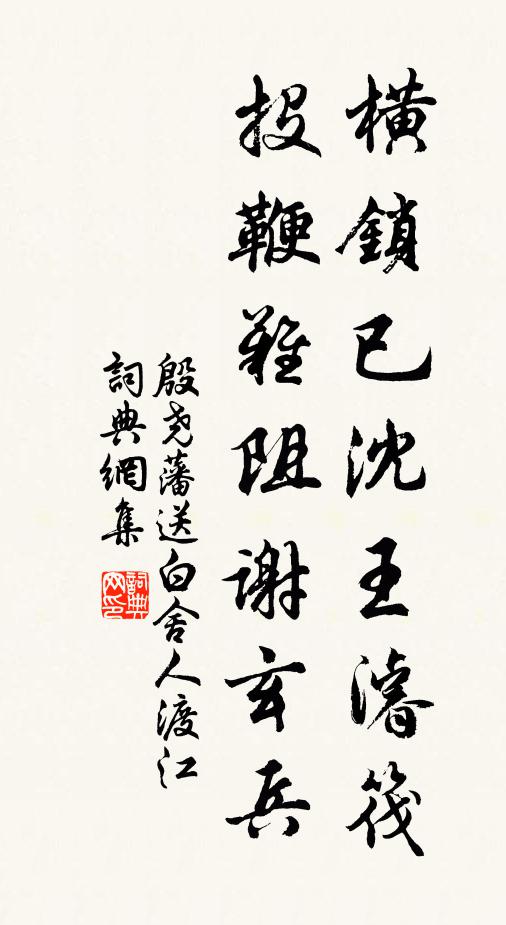 橫鎖已沈王濬筏
投鞭難阻謝玄兵
殷尧藩送白舍人渡江
詞典網集
詞典网印